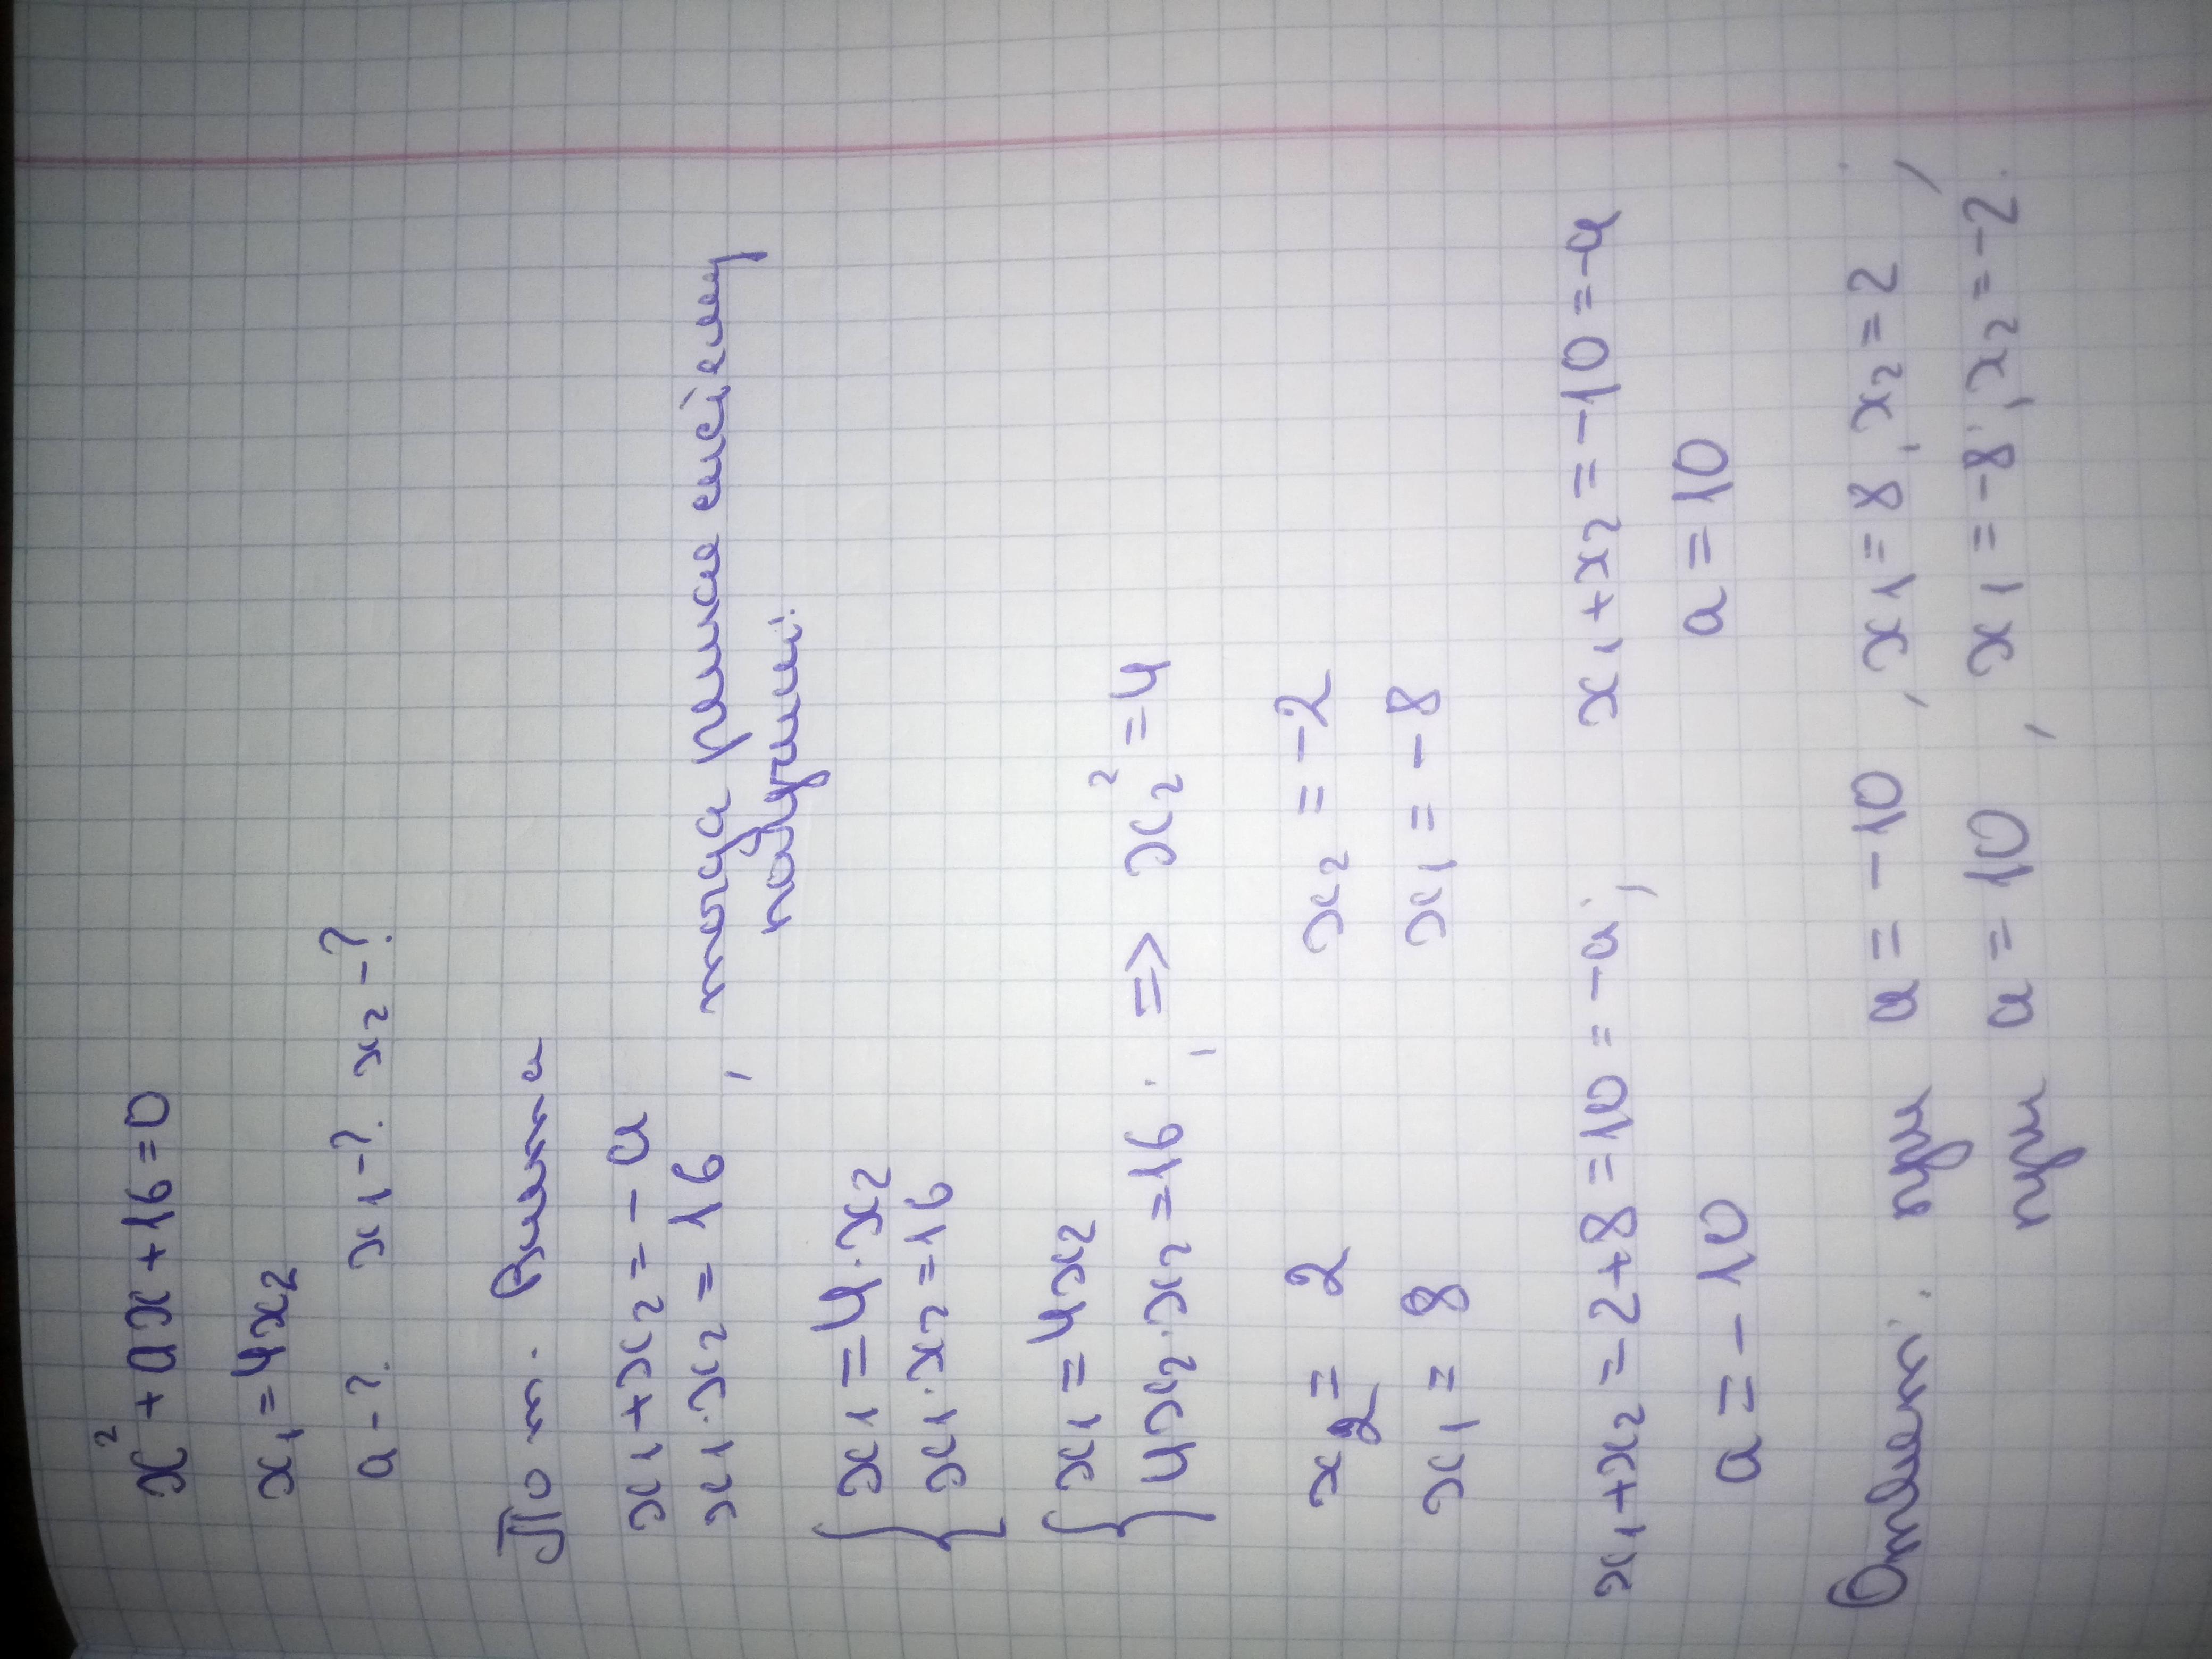 x² + ax + 16 = 0
x₁ = 4x₂
a - ? x₁ - ? x₂ - ?
По т. Виета
x₁ + x₂ = - a
x₁ · x₂ = 16 , тогда
получим:
{ x₁ = 4 · x₂
x₁ · x₂ = 16
{ x₁ = 4x₂
4x₂ · x₂ = 16 ; => x₂² = 4
x₂ = 2 x₂ = -2
x₁ = 8 x₁ = -8
x₁ + x₂ = -2+8 = 10 = -a; x₁ + x₂ = -10 = -a
a = -10 a = 10
Ответ: при a = -10 , x₁ = 8, x₂ = 2 ;
при a = 10 , x₁ = -8; x₂ = -2.